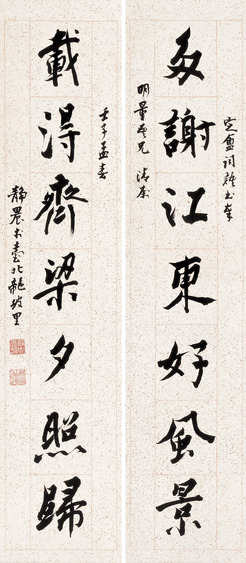 定盦詞書奉
多謝江東好風景
明量兄
壬子孟春
載得齊梁夕照歸
靜農於臺北龍坡里